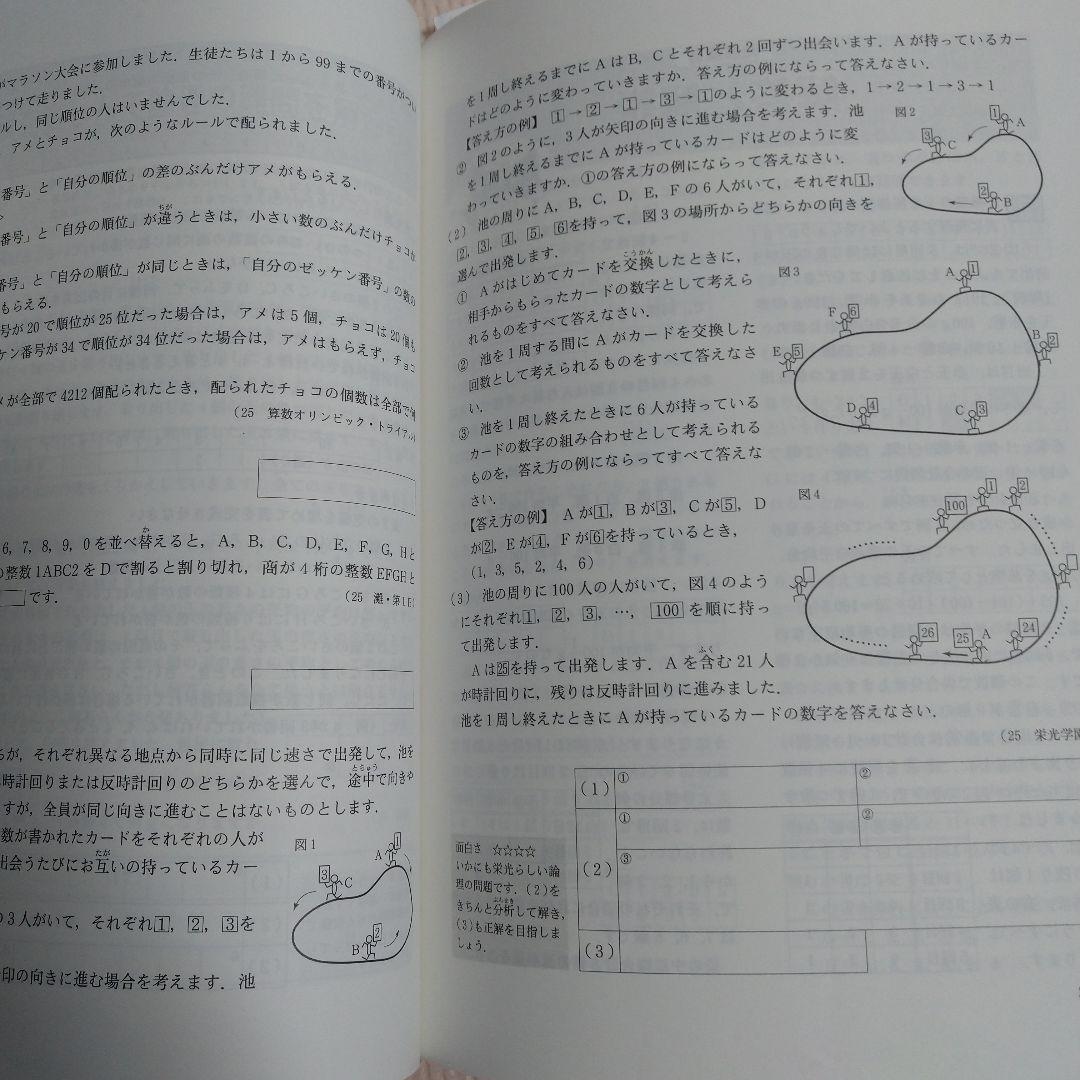 がマラソン大会に参加しました．生徒たちは1から99までの番号が
つけて走りました．
ルし，同じ順位の人はいませんでした．
アメとチョコが，次のようなルールで配られました．
番号」と「自分の順位」の差のぶんだけアメがもらえる．
番号」と「自分の順位」が違うときは，小さい数のぶんだけチョコ
番号」と「自分の順位」が同じときは，「自分のゼッケン番号」の数の
もらえる．
号が20で順位が25位だった場合は，アメは5個，チョコは20個も
ケン番号が34で順位が34位だった場合は，アメはもらえず，チョコ
メが全部で4212個配られたとき，配られたチョコの個数は全部で
(25 算数オリンピック・トライアル
6，7，8，9，0を並べ替えると，A，B，C，D，E，F，G，Hと
の整数1ABC2をDで割ると割り切れ，商が4桁の整数EFGHと
です．
(25 灘・第1日)
るが，それぞれ異なる地点から同時に同じ速さで出発して，池を
時計回りまたは反時計回りのどちらかを選んで，途中で向きや
すが，全員が同じ向きに進むことはないものとします．
数が書かれたカードをそれぞれの人が
出会うたびにお互いの持っているカー
の3人がいて，それぞれ1，2，3を
印の向きに進む場合を考えます．池
図1
A 1
3 C
B 2
を1周し終えるまでにAはB，Cとそれぞれ2回ずつ出会います．Aが持っているカー
ドはどのように変わっていきますか．答え方の例にならって答えなさい．
【答え方の例】 1→2→1→3→1のように変わるとき，1→2→1→3→1
② 図2のように，3人が矢印の向きに進む場合を考えます．池
を1周し終えるまでにAが持っているカードはどのように変
わっていきますか．①の答え方の例にならって答えなさい．
(2) 池の周りにA，B，C，D，E，Fの6人がいて，それぞれ1，
2，3，4，5，6を持って，図3の場所からどちらかの向きを
選んで出発します．
① Aがはじめてカードを交換したときに，
相手からもらったカードの数字として考えら
れるものをすべて答えなさい．
② 池を1周する間にAがカードを交換した
回数として考えられるものをすべて答えなさ
い．
③ 池を1周し終えたときに6人が持っている
カードの数字の組み合わせとして考えられる
ものを，答え方の例にならってすべて答えな
さい．
【答え方の例】 Aが1，Bが3，Cが5，D
が2，Eが4，Fが6を持っているとき，
(1，3，5，2，4，6)
(3) 池の周りに100人の人がいて，図4のよう
にそれぞれ1，2，3，…，100を順に持っ
て出発します．
Aは25を持って出発します．Aを含む21人
が時計回りに，残りは反時計回りに進みました．
池を1周し終えたときにAが持っているカードの数字を答えなさい．
(25 栄光学園
図2
1 A
3 C
2 B
図3
A 1
F 6
B 2
E 5
D 4
C 3
図4
100 1 2
26 25 A 24
(1) ① ②
(2) ① ②
③
(3)
面白さ ☆☆☆☆
いかにも栄光らしい論
理の問題です．(2)を
きちんと分析して解き，
(3)も正解を目指しま
しょう．